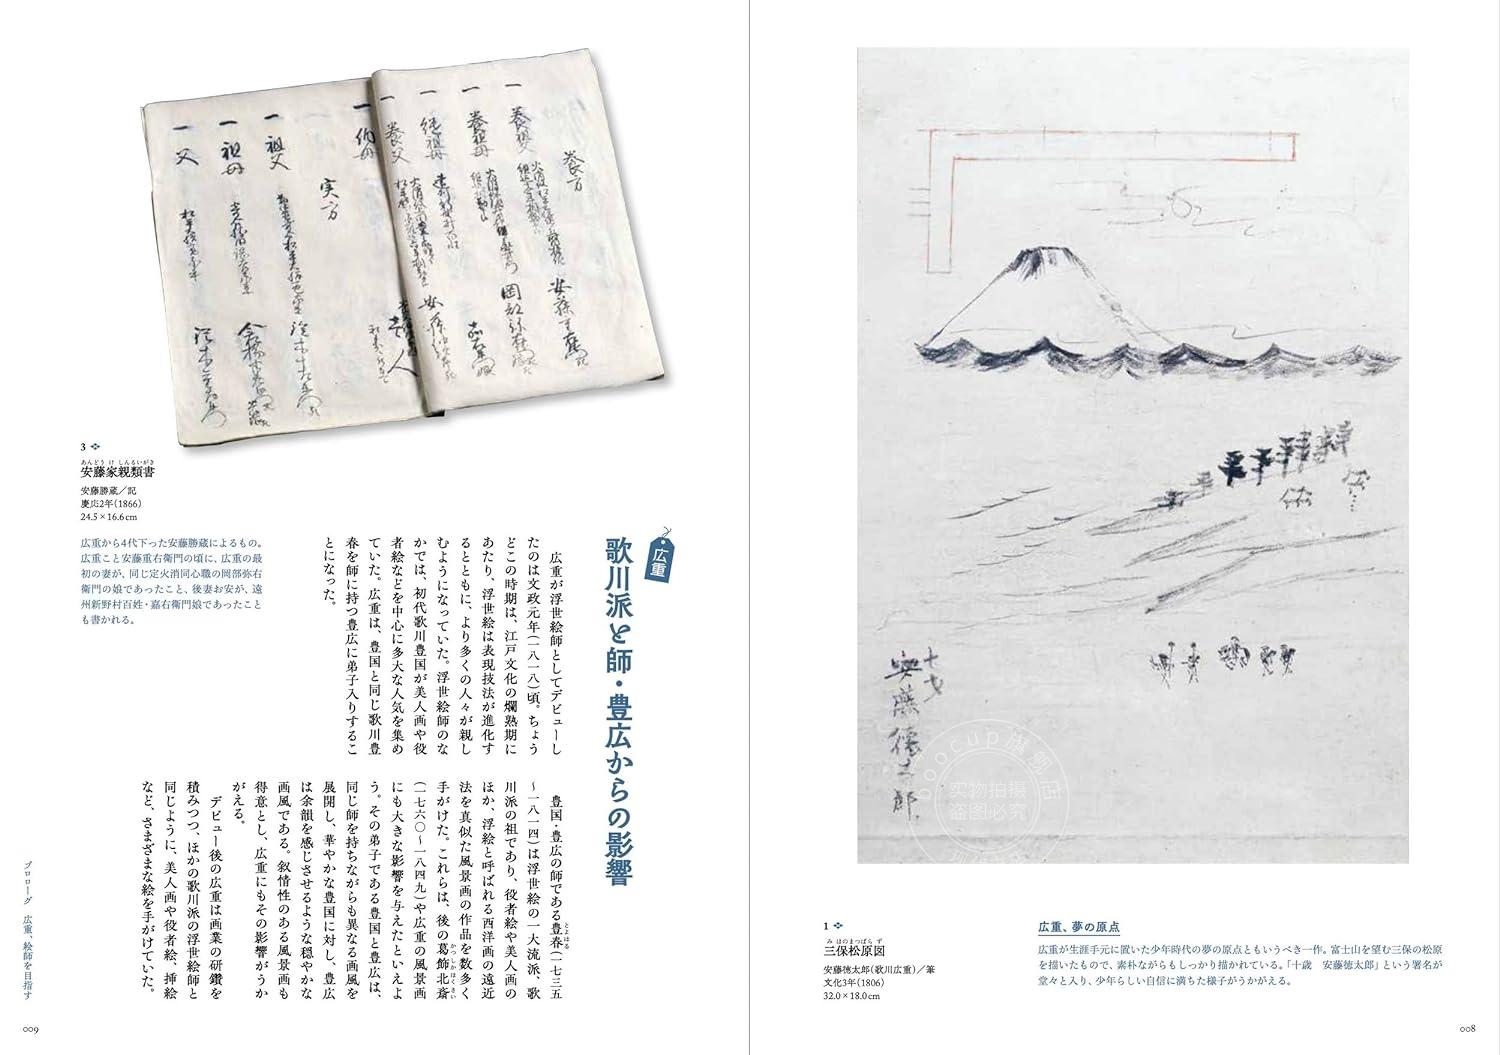 十才
安藤徳太郎
boocup旗舰店
实物拍摄
盗图必究
1
三保松原図
みほのまつばらず
安藤徳太郎(歌川広重)/筆
文化3年(1806)
32.0×18.0cm
広重、夢の原点
広重が生涯手元に置いた少年時代の夢の原点ともいうべき一作。富士山を望む三保の松原
を描いたもので、素朴ながらもしっかり描かれている。「十歳　安藤徳太郎」という署名が
堂々と入り、少年らしい自信に満ちた様子がうかがえる。
008
広重
歌川派と師・豊広からの影響
広重が浮世絵師としてデビューし
たのは文政元年(一八一八)頃。ちょう
どこの時期は、江戸文化の爛熟期に
あたり、浮世絵は表現技法が進化す
るとともに、より多くの人々が親し
むようになっていた。浮世絵師のな
かでは、初代歌川豊国が美人画や役
者絵などを中心に多大な人気を集め
ていた。広重は、豊国と同じ歌川豊
春を師に持つ豊広に弟子入りするこ
とになった。
豊国・豊広の師である豊春(一七三五
とよはる
〜一八一四)は浮世絵の一大流派、歌
川派の祖であり、役者絵や美人画の
ほか、浮絵と呼ばれる西洋画の遠近
法を真似た風景画の作品を数多く
手がけた。これらは、後の葛飾北斎
かつしかほくさい
(一七六〇〜一八四九)や広重の風景画
にも大きな影響を与えたといえよ
う。その弟子である豊国と豊広は、
同じ師を持ちながらも異なる画風を
展開し、華やかな豊国に対し、豊広
は余韻を感じさせるような穏やかな
画風である。叙情性のある風景画も
得意とし、広重にもその影響がうか
がえる。
デビュー後の広重は画業の研鑽を
積みつつ、ほかの歌川派の浮世絵師と
同じように、美人画や役者絵、挿絵
など、さまざまな絵を手がけていた。
養方
一 養祖父
一 養祖母
一 養父
実方
一 祖父
一 祖母
一 父
3
あんどうけしんるいがき
安藤家親類書
安藤勝蔵/記
慶応2年(1866)
24.5×16.6cm
広重から4代下った安藤勝蔵によるもの。
広重こと安藤重右衛門の頃に、広重の最
初の妻が、同じ定火消同心職の岡部弥右
衛門の娘であったこと、後妻お安が、遠
州新野村百姓・嘉右衛門娘であったこと
も書かれる。
プロローグ　広重、絵師を目指す
009